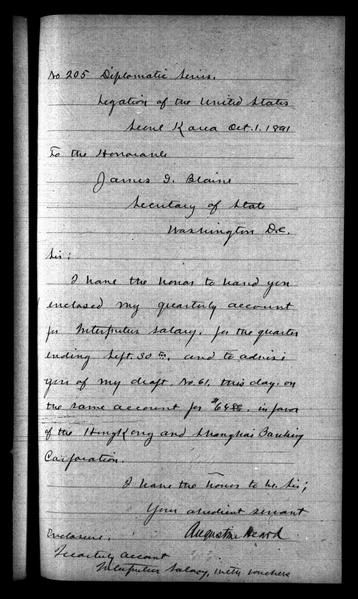 No. 205 Diplomatic Series.
Legation of the United States
Seoul Korea Oct. 1. 1891
To the Honorable
James G. Blaine
Secretary of State
Washington D.C.
Sir:
I have the honor to hand you
enclosed my quarterly account
for Interpreters Salary, for the quarter
ending Sept. 30th, and to advise
you of my draft No. 61, this day, on
the same account for in favor
of the HongKong and Shanghai Banking
Corporation.
I have the honor to be, Sir,
Your obedient servant
Augustine Heard
Enclosure.
Quarterly account
Interpreters Salary, with vouchers